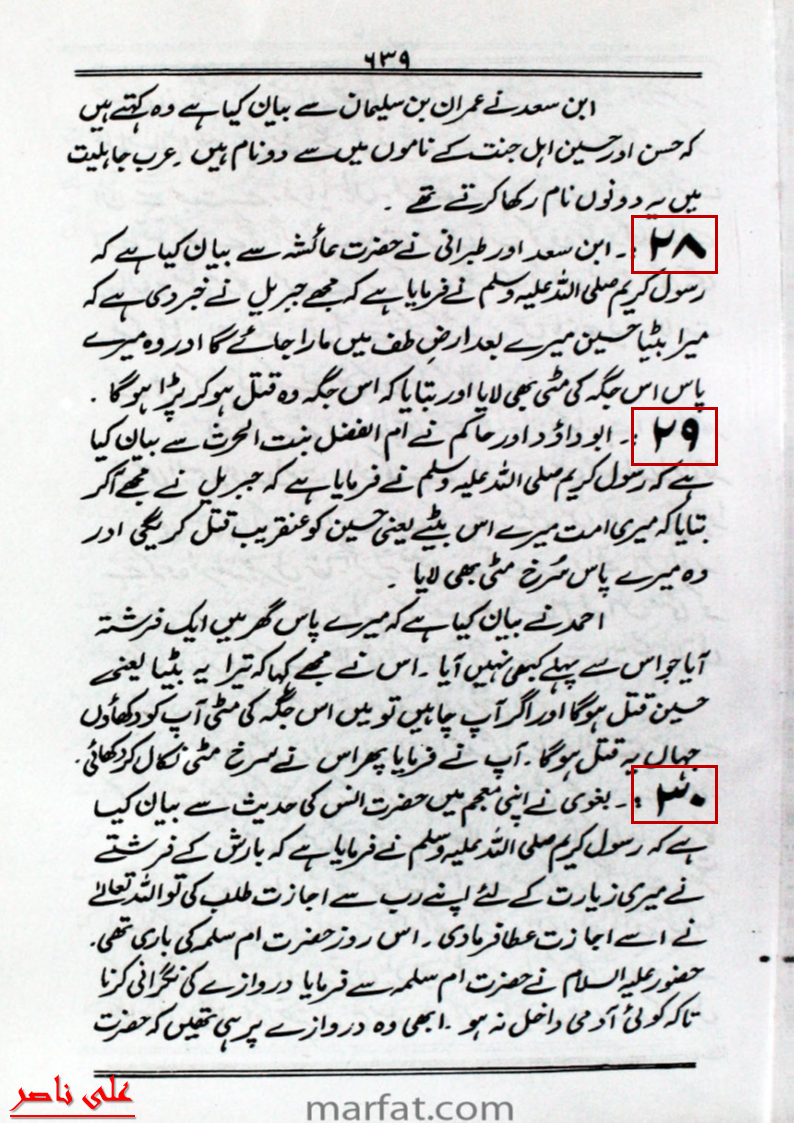 ۶۳۹
ابن سعد نے عمران بن سلیمان سے بیان کیا ہے وہ کہتے ہیں
کہ حسن اور حسین اہل جنت کے ناموں میں سے دو نام ہیں ۔ عرب جاہلیت
میں یہ دونوں نام رکھا کرتے تھے ۔
۲۸ :۔ ابن سعد اور طبرانی نے حضرت عائشہ سے بیان کیا ہے کہ
رسول کریم صلی اللہ علیہ وسلم نے فرمایا ہے کہ مجھے جبریل نے خبر دی ہے کہ
میرا بیٹا حسین میرے بعد ارضِ طف میں مارا جائے گا اور وہ میرے
پاس اس جگہ کی مٹی بھی لایا اور بتایا کہ اس جگہ وہ قتل ہو کر پڑا ہوگا ۔
۲۹ :۔ ابو داؤد اور حاکم نے ام الفضل بنت الحرث سے بیان کیا
ہے کہ رسول کریم صلی اللہ علیہ وسلم نے فرمایا ہے کہ جبریل نے مجھے آکر
بتایا کہ میری امت میرے اس بیٹے یعنی حسین کو عنقریب قتل کریگی اور
وہ میرے پاس سُرخ مٹی بھی لایا ۔
احمد نے بیان کیا ہے کہ میرے پاس گھر میں ایک فرشتہ
آیا جو اس سے پہلے کبھی نہیں آیا ۔ اس نے مجھے کہا کہ تیرا یہ بیٹا یعنی
حسین قتل ہوگا اور اگر آپ چاہیں تو میں اس جگہ کی مٹی آپ کو دکھاؤں
جہاں یہ قتل ہوگا ۔ آپ نے فرمایا پھر اس نے سرخ مٹی نکال کر دکھائی ۔
۳۰ :۔ بغوی نے اپنی معجم میں حضرت انس کی حدیث سے بیان کیا
ہے کہ رسول کریم صلی اللہ علیہ وسلم نے فرمایا ہے کہ بارش کے فرشتے
نے میری زیارت کے لئے اپنے رب سے اجازت طلب کی تو اللہ تعالےٰ
نے اسے اجازت عطا فرما دی ۔ اس روز حضرت ام سلمہ کی باری تھی ۔
حضور علیہ السلام نے حضرت ام سلمہ سے فرمایا دروازے کی نگرانی کرنا
تاکہ کوئی آدمی داخل نہ ہو ۔ ابھی وہ دروازے پر ہی تھیں کہ حضرت
علی ناصر
marfat.com